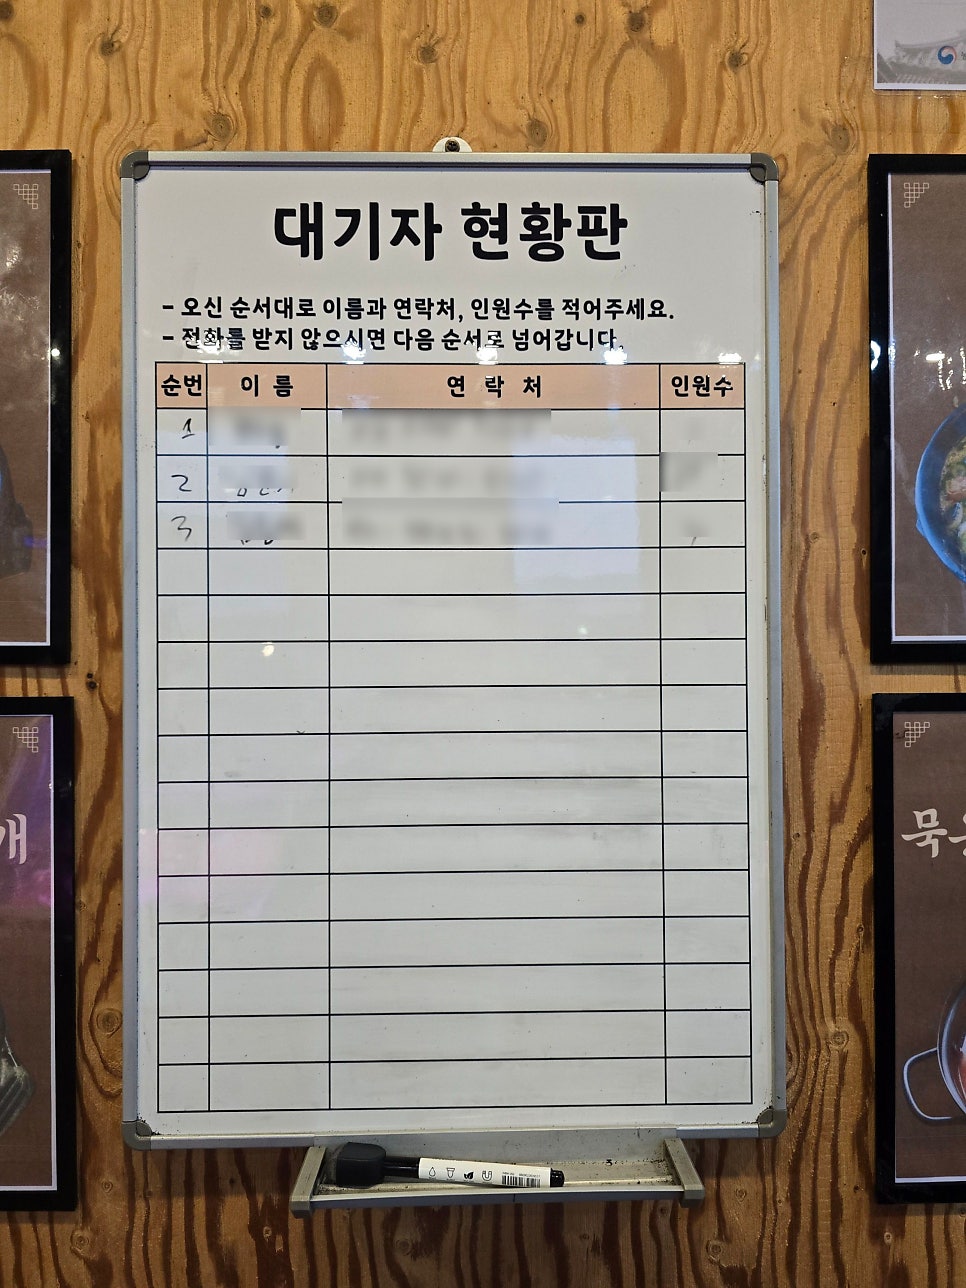 대기자 현황판
- 오신 순서대로 이름과 연락처, 인원수를 적어주세요.
- 전화를 받지 않으시면 다음 순서로 넘어갑니다.
순번 이 름 연 락 처 인원수
1
2
3
개
묵은